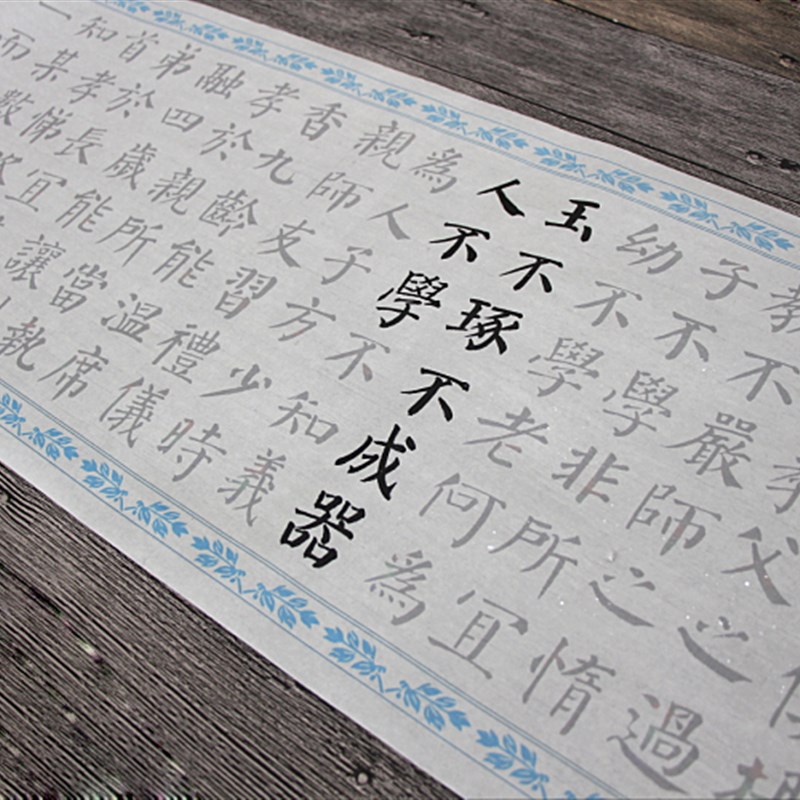 父之過
教不嚴師之惰
子不學非所冝
幼不學老何為
玉不琢不成器
人不學不知義
為人子方少時
親師友習禮儀
香九齡能溫席
孝於親所當執
融四歲能讓
弟於長冝
首孝悌
知某數
一而